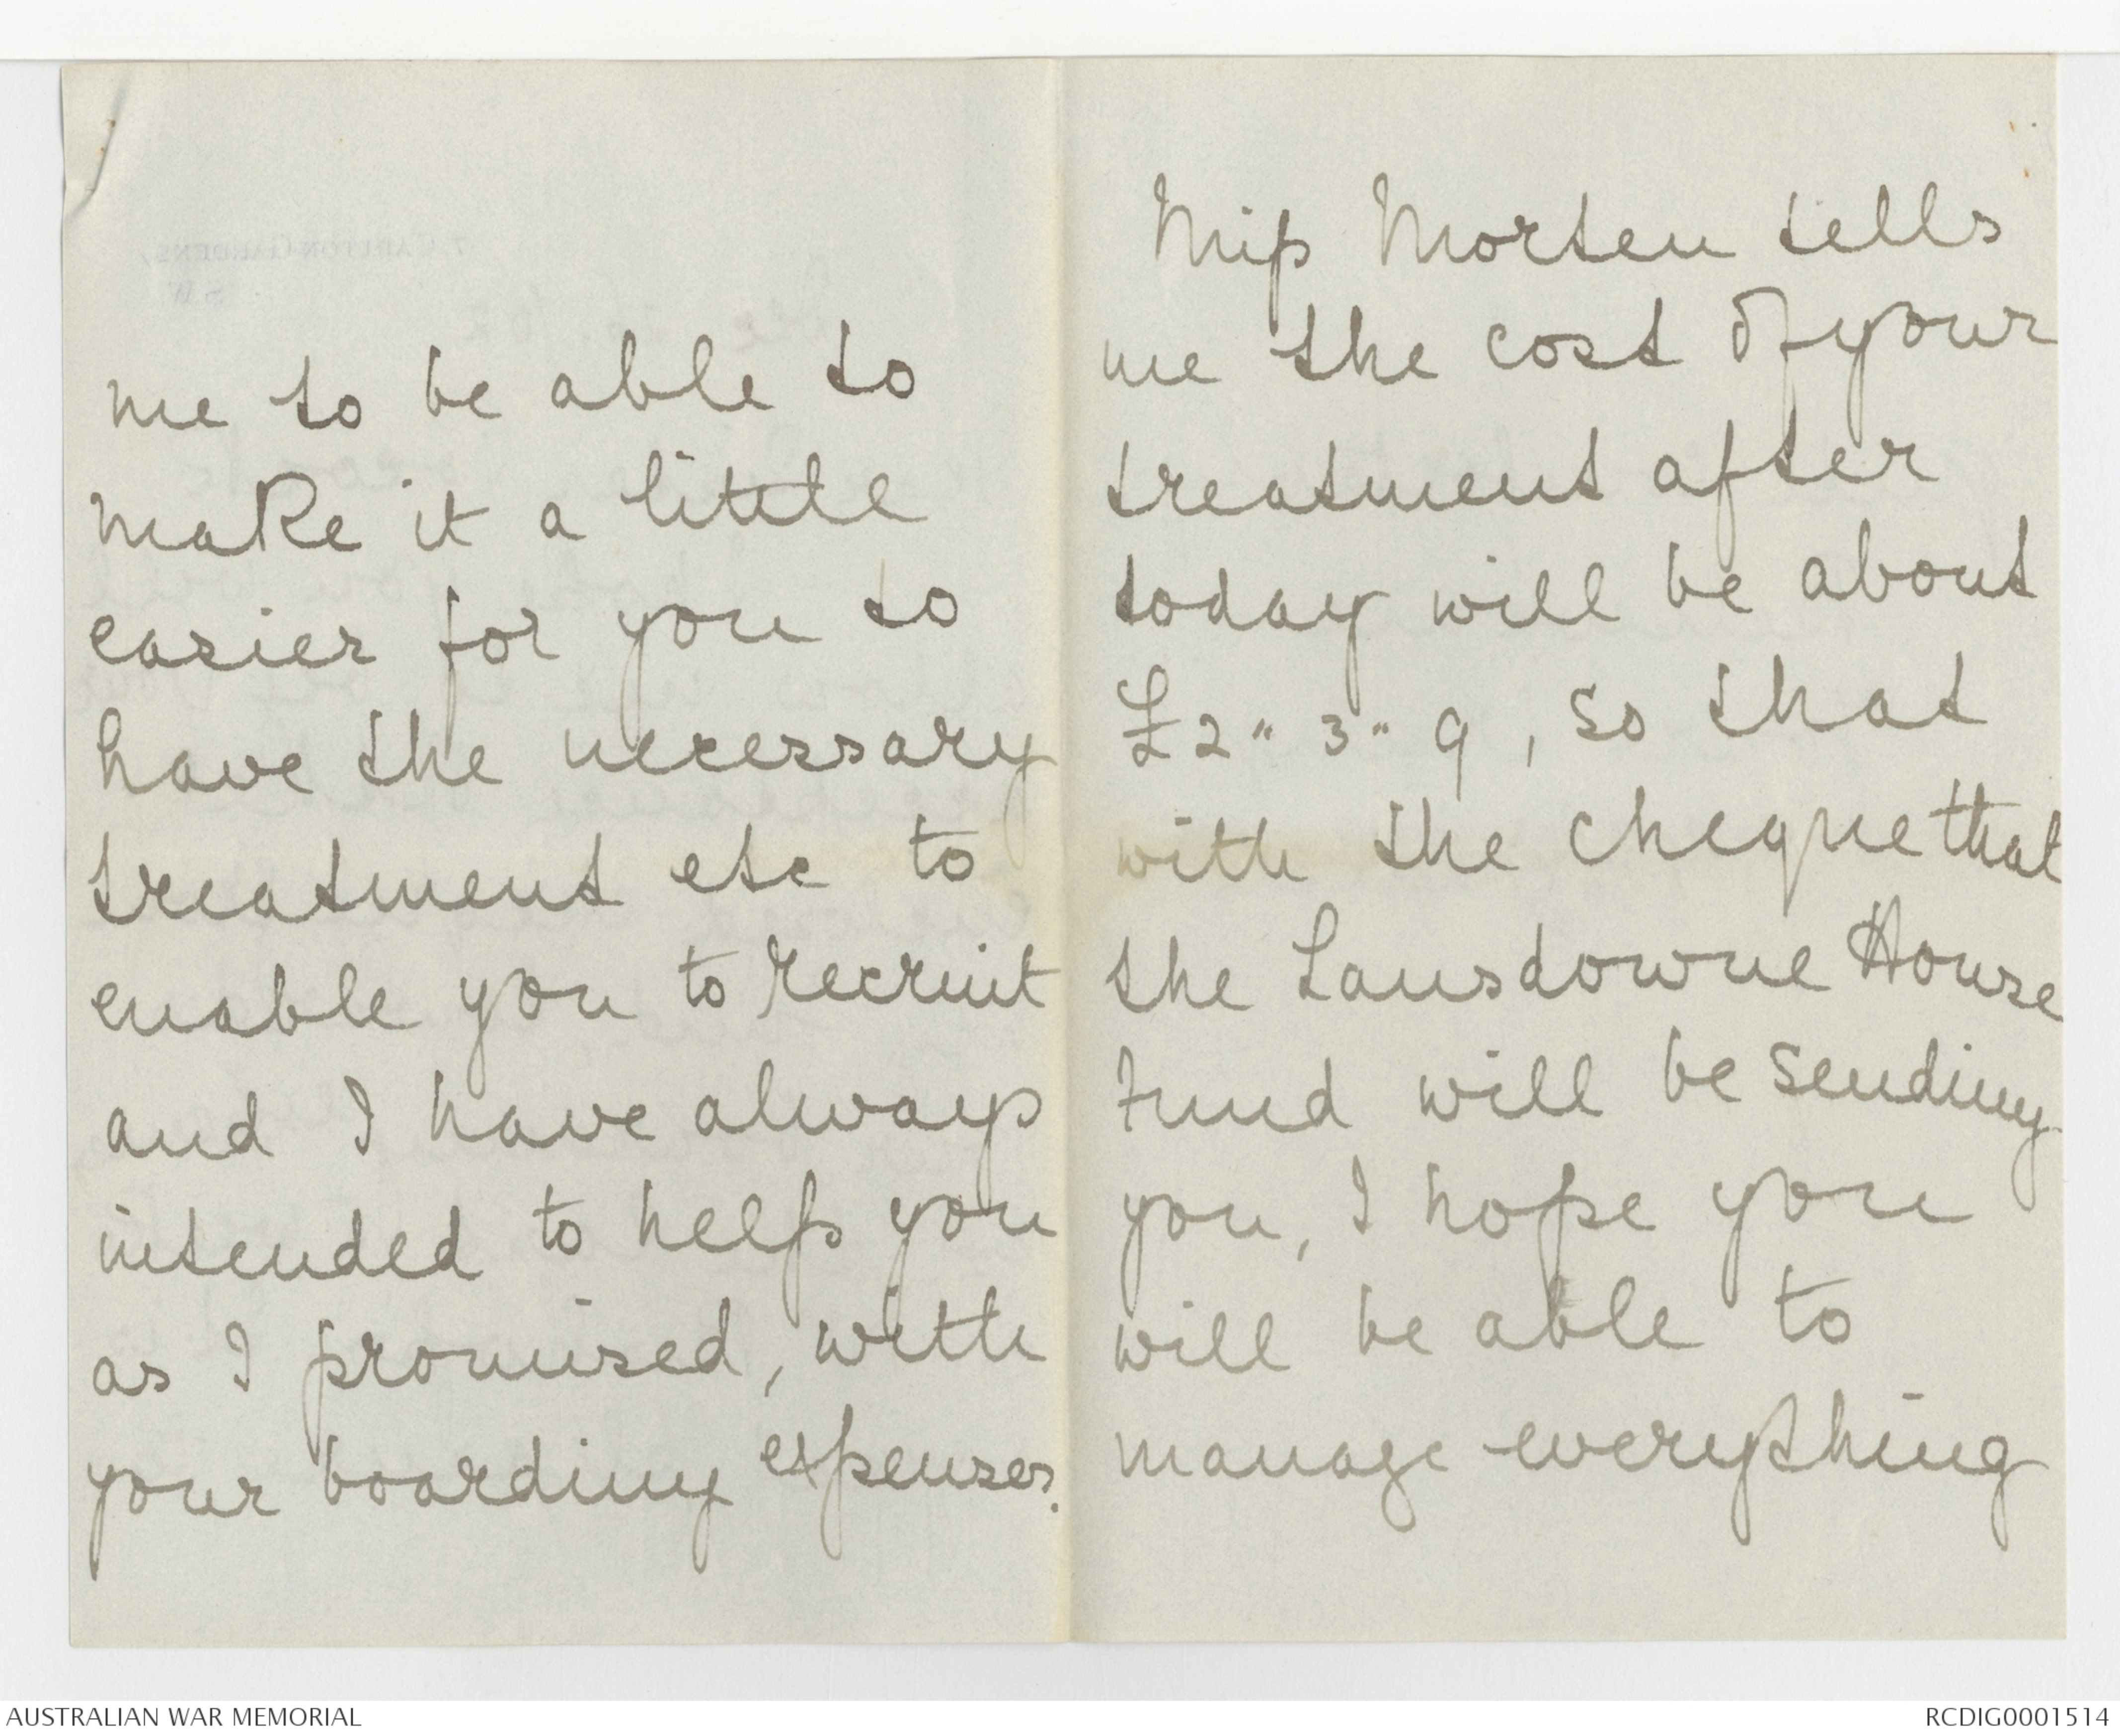 me to be able to
make it a little
easier for you to
have the necessary
treatment etc to
enable you to recruit
and I have always
intended to help you
as I promised, with
your boarding expenses.
Miss Morten tells
me the cost of your
treatment after
today will be about
£2" 3" 9, so that
with the cheque that
the Lansdowne House
Fund will be sending
you, I hope you
will be able to
manage everything
7, CARLTON GARDENS,
S.W.
AUSTRALIAN WAR MEMORIAL
RCDIG0001514